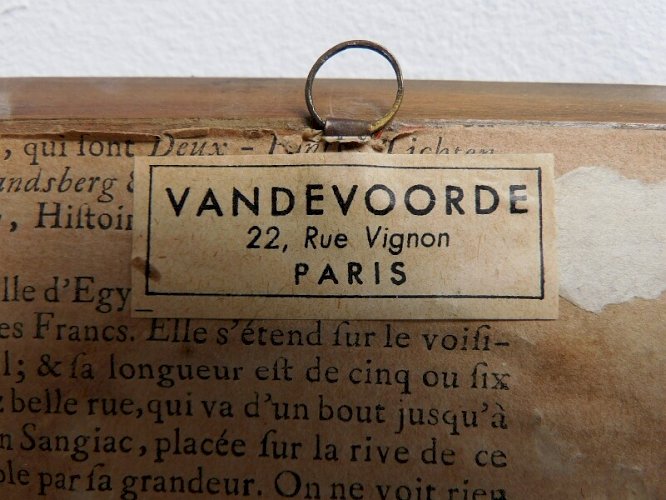 , qui ſont Deux-Ponts, Lichten
andsberg &
, Hiſtoir
VANDEVOORDE
22, Rue Vignon
PARIS
lle d'Egy
es Francs. Elle s'étend ſur le voiſi-
l; & ſa longueur eſt de cinq ou ſix
belle rue, qui va d'un bout jusqu'à
n Sangiac, placée ſur la rive de ce
ole par ſa grandeur. On ne voit rien